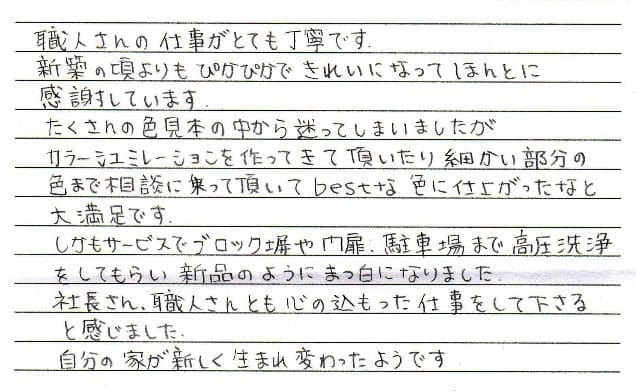 職人さんの仕事がとても丁寧です.
新築の頃よりもぴかぴかできれいになってほんとに
感謝しています.
たくさんの色見本の中から迷ってしまいましたが
カラーシュミレーションを作ってきて頂いたり細かい部分の
色まで相談に乗って頂いてbestな色に仕上がったなと
大満足です.
しかもサービスでブロック塀や門扉、駐車場まで高圧洗浄
をしてもらい新品のようにまっ白になりました.
社長さん、職人さんとも心の込もった仕事をして下さる
と感じました.
自分の家が新しく生まれ変わったようです